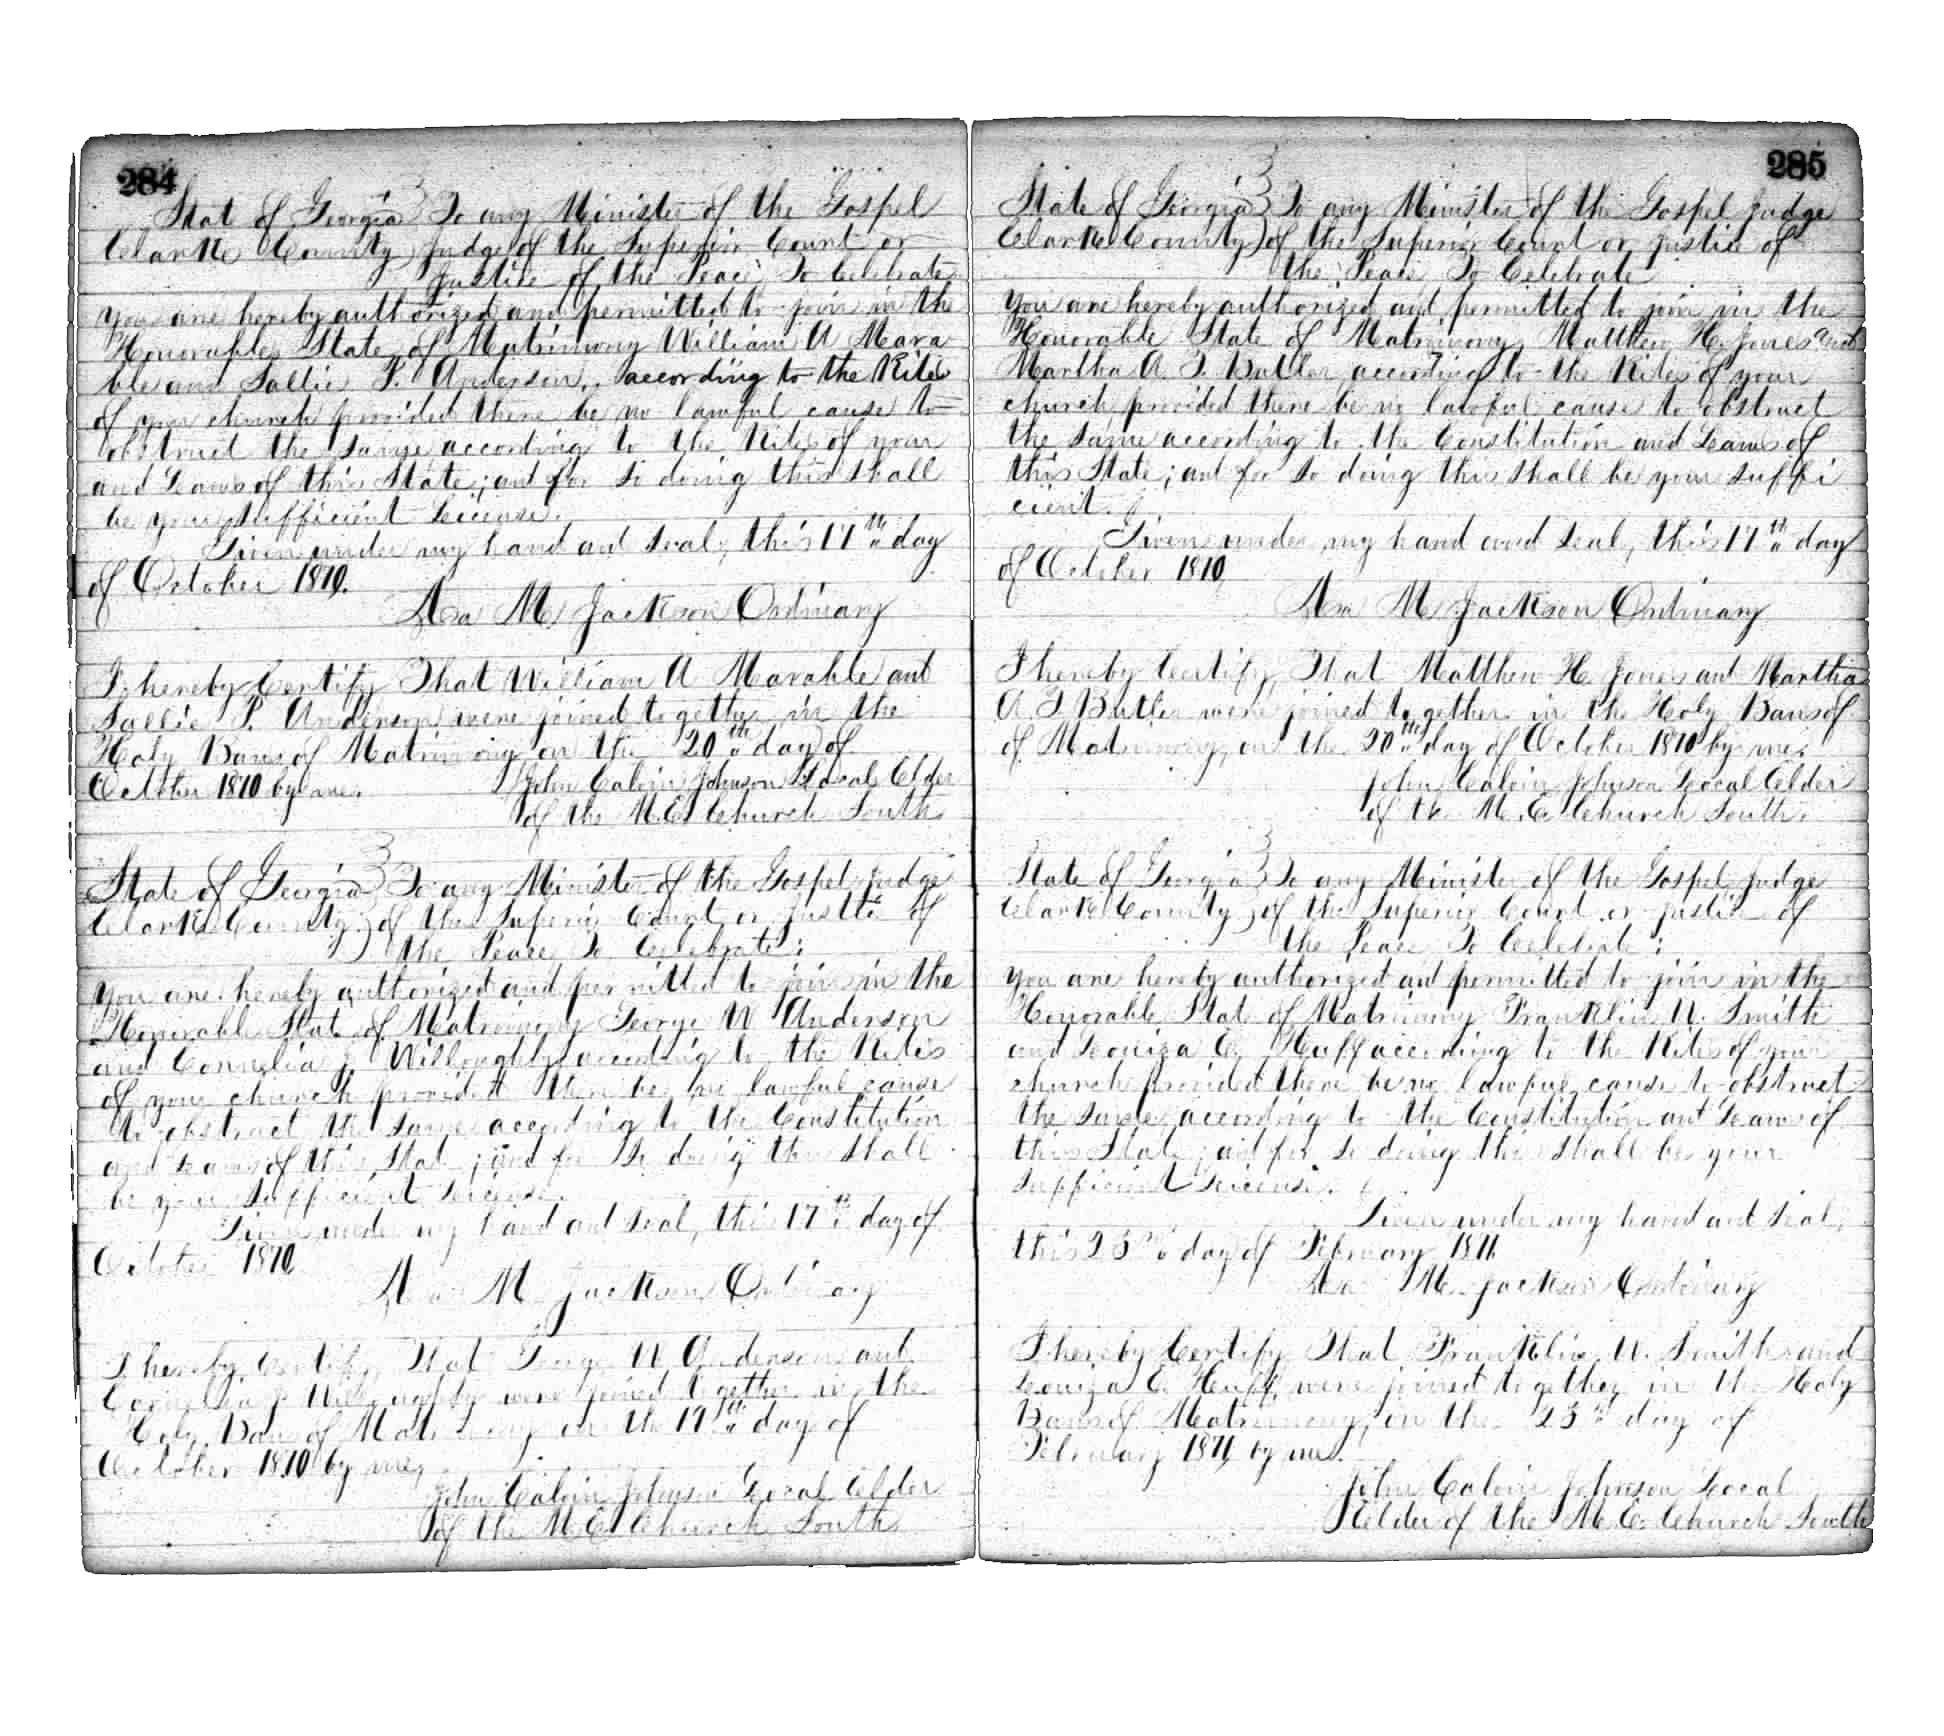 284
Stat of Georgia } To any Minister of the Gospel
Clarke County } Judge of the Superior Court or
Justice of the Peace To Celebrate
you are hereby authorized and permitted to join in the
Honorable State of Matrimony William A Mara
ble and Sallie P. Anderson, according to the Rites
of your church provided there be no lawful cause to
obstruct the same according to the Rites of your
and Laws of this State; and for so doing this shall
be your sufficient License.
Given under my hand and seal, this 17th day
of October 1870.
Asa M Jackson Ordinary
I hereby Certify That William A Marable and
Sallie P. Anderson were joined together in the
Holy Bans of Matrimony on the 20th day of
October 1870 by me.
John Calvin Johnson Local Elder
of the M.E. Church South
State of Georgia } To any Minister of the Gospel Judge
Clarke County } of the Superior Court or Justice of
the Peace To Celebrate:
you are hereby authorized and permitted to join in the
Honorable State of Matrimony George W Anderson
and Cornelia J. Willoughby according to the Rites
of your church provided there be no lawful cause
to obstruct the same according to the Constitution
and Laws of this State; and for so doing this shall
be your sufficient License.
Given under my hand and seal, this 17th day of
October 1870
Asa M. Jackson Ordinary
I hereby Certify That George W Anderson and
Cornelia J Willoughby were joined together in the
Holy Bans of Matrimony on the 19th day of
October 1870 by me,
John Calvin Johnson Local Elder
of the M.E. Church South
285
State of Georgia } To any Minister of the Gospel Judge
Clarke County } of the Superior Court or Justice of
the Peace To Celebrate
you are hereby authorized and permitted to join in the
Honorable State of Matrimony Matthew H. Jones and
Martha A. T. Butler according to the Rites of your
church provided there be no lawful cause to obstruct
the same according to the Constitution and Laws of
this State; and for so doing this shall be your suffi
cient.
Given under my hand and seal, this 17th day
of October 1870
Asa M Jackson Ordinary
I hereby Certify, That Matthew H. Jones and Martha
A. T Butler were joined together in the Holy Bans of
of Matrimony, on the 20th day of October 1870 by me.
John Calvin Johnson Local Elder
of the M.E. Church South.
State of Georgia } To any Minister of the Gospel Judge
Clarke County } of the Superior Court or Justice of
the Peace To Celebrate:
you are hereby authorized and permitted to join in the
Honorable State of Matrimony Franklin W. Smith
and Louiza E. Huff according to the Rites of your
church provided there be no lawful cause to obstruct
the same according to the Constitution and Laws of
this State; and for so doing this shall be your
sufficient License.
Given under my hand and seal,
this 23rd day of February 1871
Asa M. Jackson Ordinary
I hereby Certify That Franklin W. Smith and
Louiza E. Huff were joined together in the Holy
Bans of Matrimony, on the 23rd day of
February 1871, by me.
John Calvin Johnson Local
Elder of the M.E. Church South